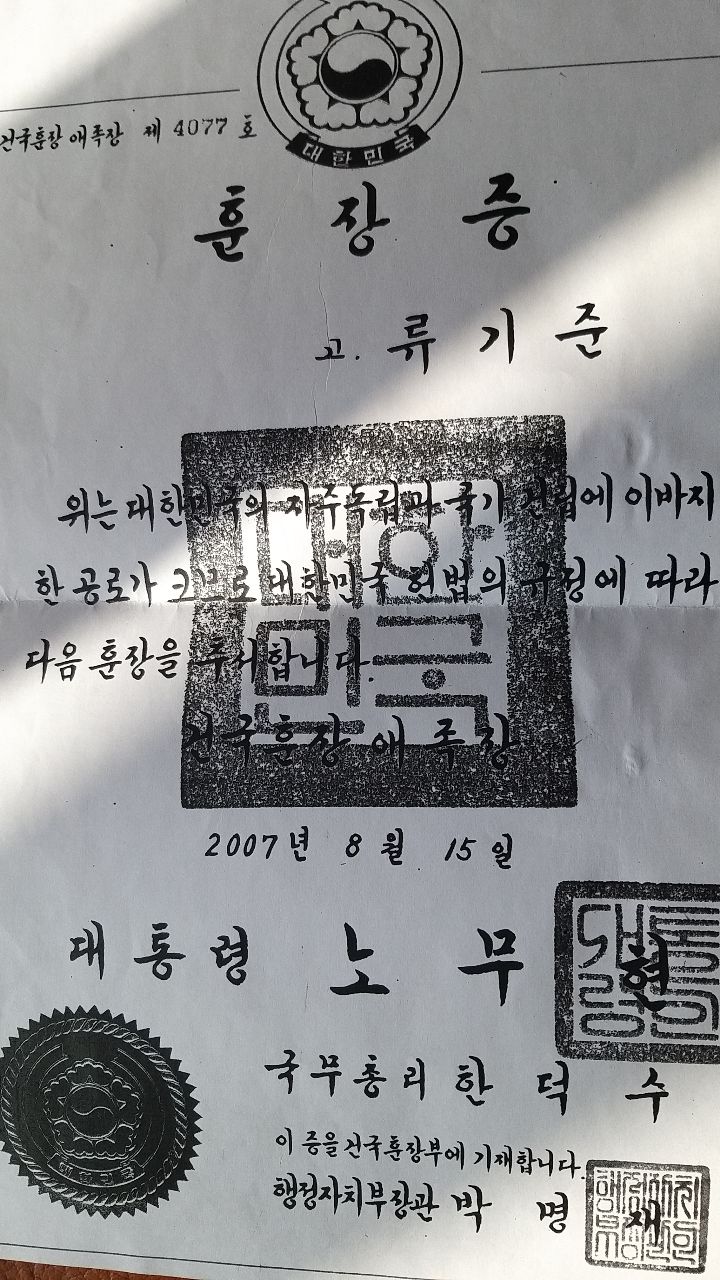 건국훈장 애족장 제 4077 호
대한민국
훈 장 증
고. 류 기 준
위는 대한민국의 자주독립과 국가 건립에 이바지
한 공로가 크므로 대한민국 헌법의 규정에 따라
다음 훈장을 추서합니다.
건국훈장 애족장
대한민국
2007년 8월 15일
대통령 노 무 현
국무총리 한 덕 수
대한민국
이 증을 건국훈장부에 기재합니다.
행정자치부장관 박 명 재